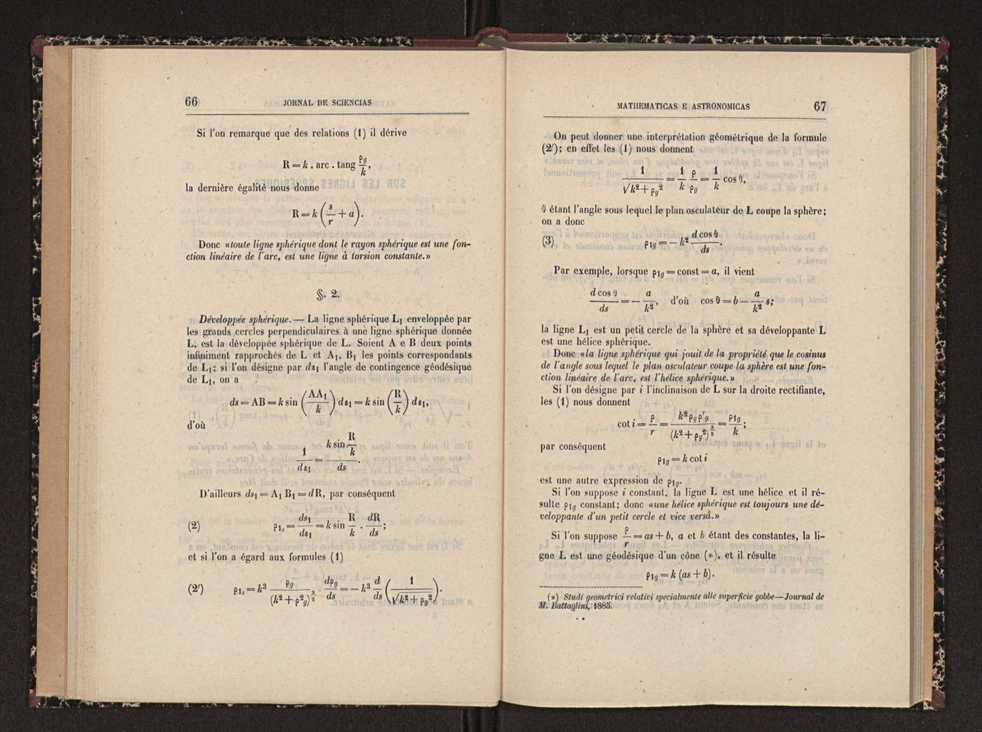 66 JORNAL DE SCIENCIAS
Si l'on remarque que des relations (1) il dérive
R = k . arc . tang ρg/k,
la dernière égalité nous donne
R = k (s/r + a).
Donc «toute ligne sphérique dont le rayon sphérique est une fon-
ction linéaire de l'arc, est une ligne à torsion constante.»
§. 2.
Développée sphérique. — La ligne sphérique L₁ enveloppée par
les grands cercles perpendiculaires à une ligne sphérique donnée
L, est la développée sphérique de L. Soient A e B deux points
infiniment rapprochés de L et A₁, B₁ les points correspondants
de L₁; si l'on désigne par dε₁ l'angle de contingence géodésique
de L₁, on a
ds = AB = k sin (AA₁/k) dε₁ = k sin (R/k) dε₁,
d'où
1/dε₁ = k sin R/k / ds.
D'ailleurs ds₁ = A₁ B₁ = dR, par conséquent
(2) ρ₁g = ds₁/dε₁ = k sin R/k . dR/ds;
et si l'on a égard aux formules (1)
(2') ρ₁g = k³ ρg/(k² + ρ²g)^3/2 . dρg/ds = − k³ d/ds (1/√k² + ρg²).
MATHEMATICAS E ASTRONOMICAS 67
On peut donner une interprétation géométrique de la formule
(2'); en effet les (1) nous donnent
1/√k² + ρg² = 1/k ρ/ρg = 1/k cos θ,
θ étant l'angle sous lequel le plan osculateur de L coupe la sphère;
on a donc
(3) ρ₁g = − k² d cos θ/ds.
Par exemple, lorsque ρ₁g = const = a, il vient
d cos θ/ds = − a/k², d'où cos θ = b − a/k² s;
la ligne L₁ est un petit cercle de la sphère et sa développante L
est une hélice sphérique.
Donc «la ligne sphérique qui jouit de la propriété que le cosinus
de l'angle sous lequel le plan osculateur coupe la sphère est une fon-
ction linéaire de l'arc, est l'hélice sphérique.»
Si l'on désigne par i l'inclinaison de L sur la droite rectifiante,
les (1) nous donnent
cot i = ρ/r = k²ρgρ'g/(k² + ρg²)^3/2 = ρ₁g/k;
par conséquent
ρ₁g = k cot i
est une autre expression de ρ₁g.
Si l'on suppose i constant, la ligne L est une hélice et il ré-
sulte ρ₁g constant; donc «une hélice sphérique est toujours une dé-
veloppante d'un petit cercle et vice versâ.»
Si l'on suppose ρ/r = as + b, a et b étant des constantes, la li-
gne L est une géodésique d'un cône (*), et il résulte
ρ₁g = k (as + b).
(*) Studi geometrici relativi specialmente alle superficie gobbe—Journal de
M. Battaglini, 1885.